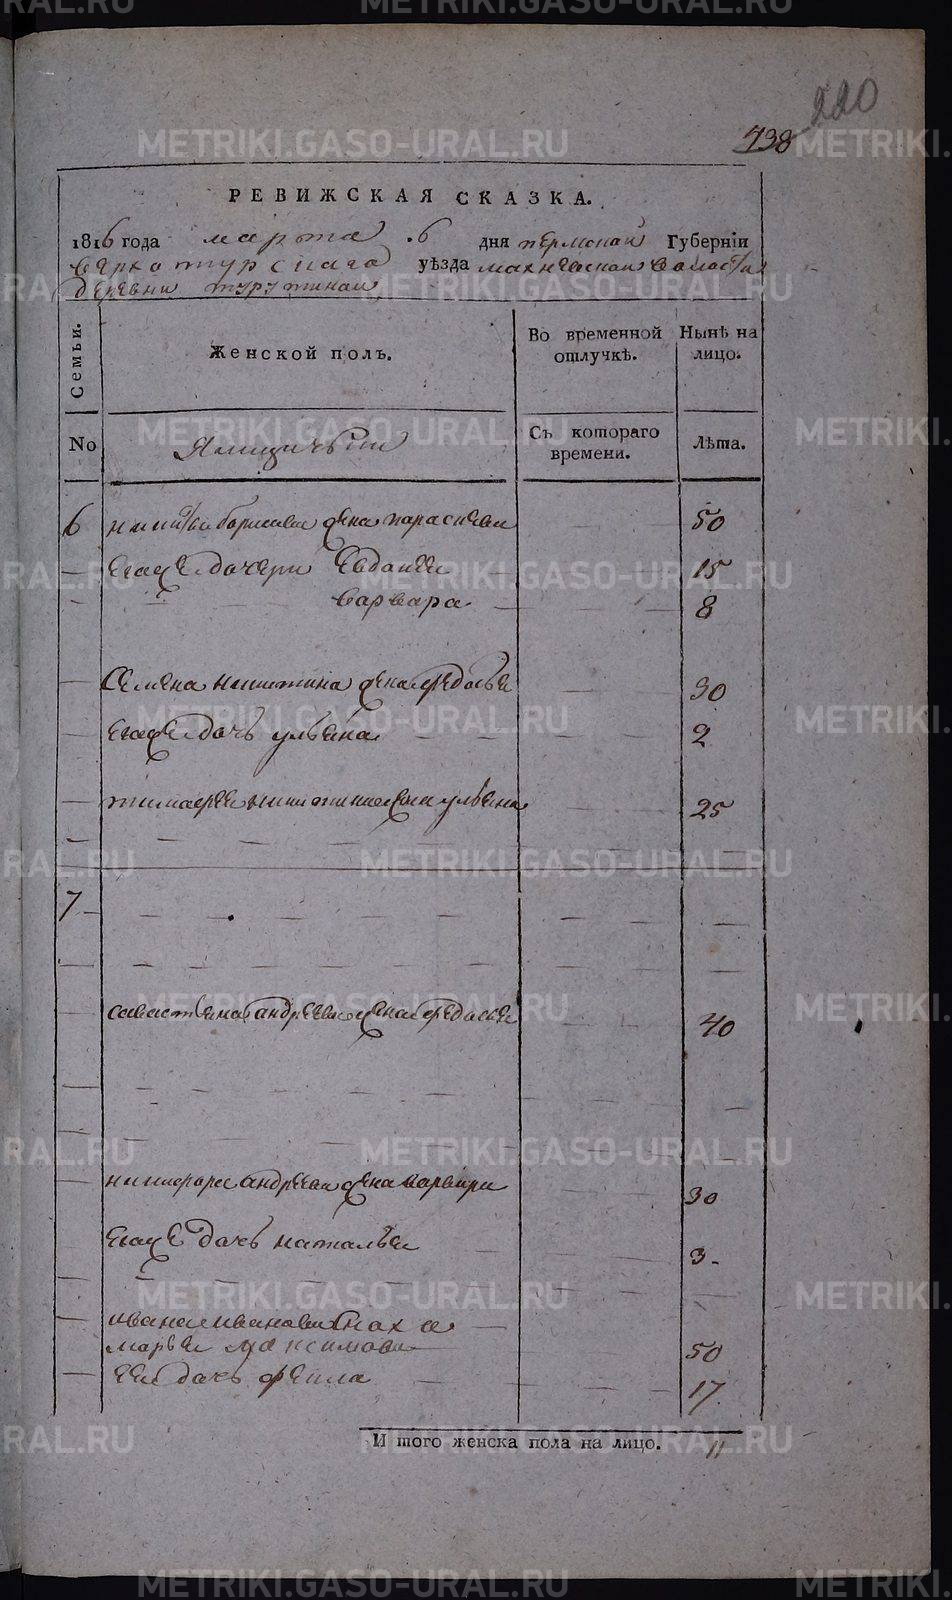 220
738
РЕВИЖСКАЯ СКАЗКА.
1816 года марта 6 дня пермской Губернїи
верхотурскаго уѣзда махневской волости
деревни турутиной
Семьи.
Женской полъ.
Во временной отлучкѣ.
Нынѣ на лицо.
No
Ямщичьи
Съ котораго времени.
Лѣта.
6 никиты борисова жена парасковья 50
егоже дочери Евдокея 15
варвара 8
Семена никитина жена федосья 30
егоже дочь ульяна 2
тимофея никитина жена ульяна 25
7
савастьяна андреева жена федосья 40
никифора андреева жена варвара 30
егоже дочь наталья 3
ивана иванова сноха
марья максимова 50
ея дочь фекла 17
И того женска пола на лицо. 11
METRIKI.GASO-URAL.RU